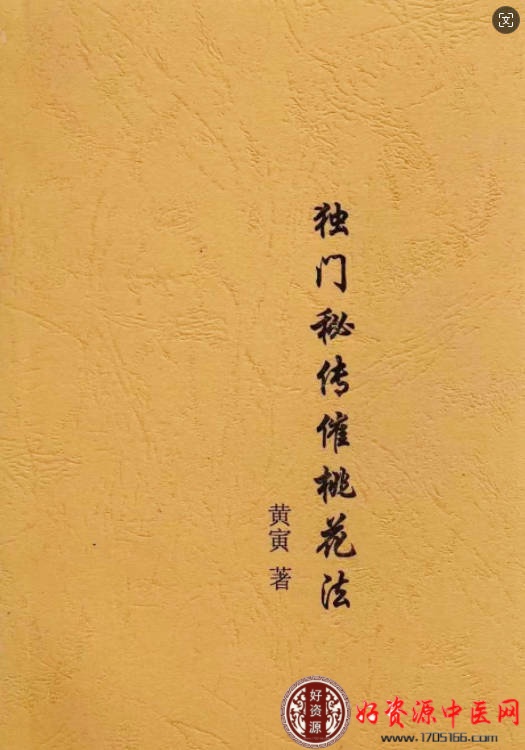 独门秘传催桃花法
黄寅 著
好资源
好资源中医网
www.1705166.com